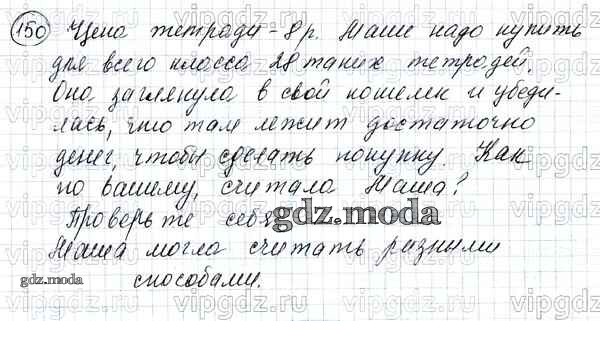 150 Цена тетради - 8 р. Маше надо купить
для всего класса 28 таких тетрадей.
Она заглянула в свой кошелек и убеди-
лась, что там лежит достаточно
денег, чтобы сделать покупку. Как
по вашему, считала Маша?
Проверьте себя
gdz.moda
Маша могла считать разными
gdz.moda
способами.